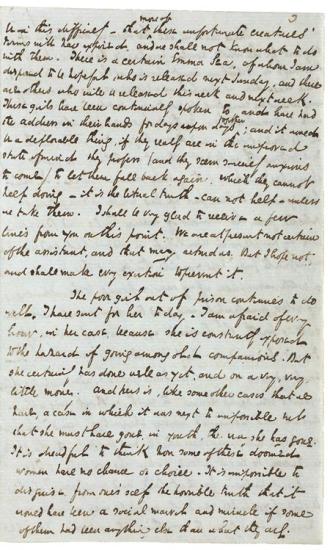 3
more of
in this difficulty – that these unfortunate creatures'
terms will have expired, and we shall not know what to do
with them. There is a certain Emma Lea, of whom I am
disposed to be hopeful, who is released next Sunday, and there
are others who will be released this week and next week.
These girls have been continually spoken to, and have had
the address in their hands for days upon days; and it would
be a deplorable thing, if they really are in the improved
state of mind they profess (and they seem sincerely anxious
to come) to let them fall back again which they cannot
help doing – it is the literal truth – can not help – unless
we take them. I shall be very glad to receive a few
lines from you on this point. We are at present not certain
of the assistant, and that may retard us. But I hope not:
and shall make every exertion to prevent it.
The poor girl out of prison continues to do
well. I have sent for her to day. I am afraid of every
hour, in her case, because she is constantly exposed
to the hazard of going among old companions. But
she certainly has done well as yet, and on a very, very,
little money. And hers is, like some other cases that we
have, a case in which it was next to impossible but
that she must have gone, in youth, the way she has gone.
It is dreadful to think how some of these doomed
women have no chance or choice. It is impossible to
disguise from one's self the horrible truth that it
would have been a social marvel and miracle if some
of them had been anything else than what they are.